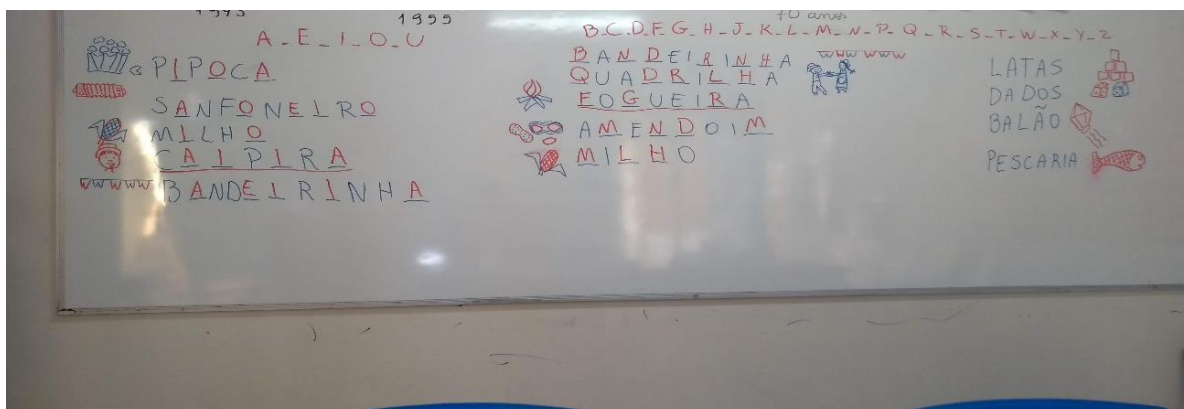 1943
1999
10 anos
A - E - I - O - U
PIPOCA
SANFONEIRO
MILHO
CAIPIRA
BANDEIRINHA
B - C - D - F - G - H - J - K - L - M - N - P - Q - R - S - T - W - X - Y - Z
BANDEIRINHA
QUADRILHA
FOGUEIRA
AMENDOIM
MILHO
LATAS
DADOS
BALÃO
PESCARIA